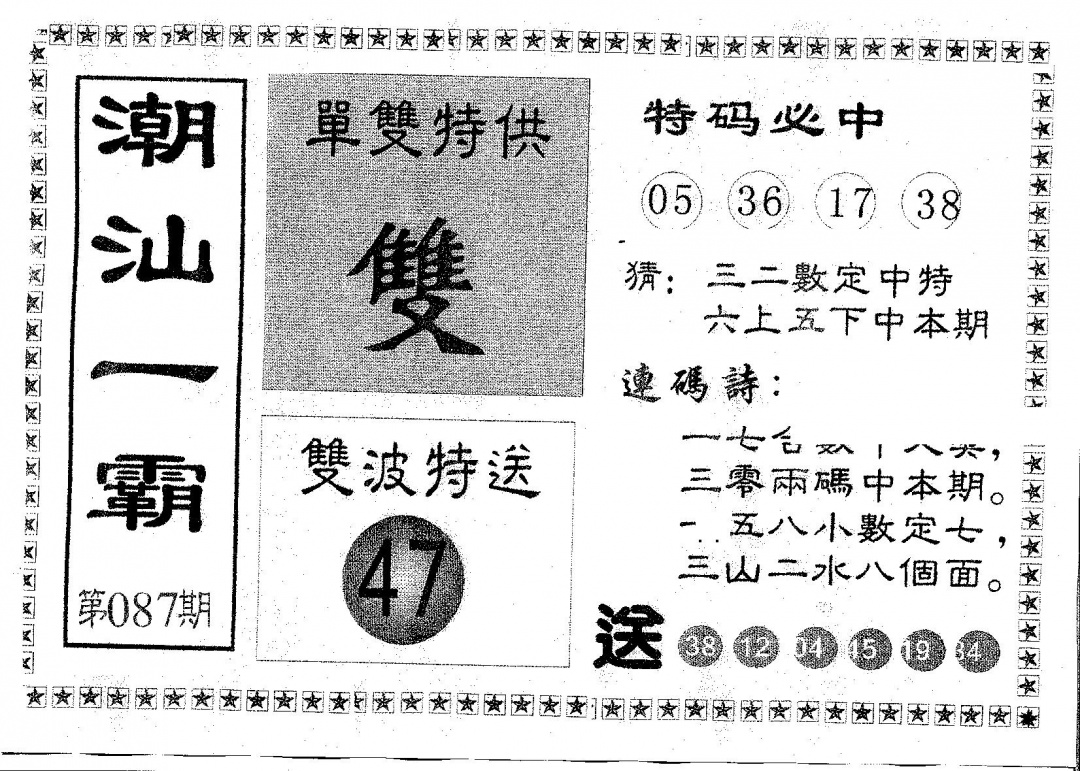 潮汕一霸
第087期
單雙特供
雙
雙波特送
47
特码必中
05 36 17 38
猜：三二數定中特
六上五下中本期
連碼詩：
一七合數
三零兩碼中本期。
一五八小數定七，
三山二水八個面。
送 38 12 04 19 34